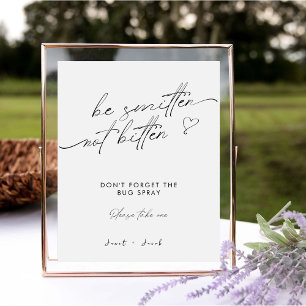 be smitten
not bitten
DON'T FORGET THE
BUG SPRAY
Please take one
Janet • Jacob